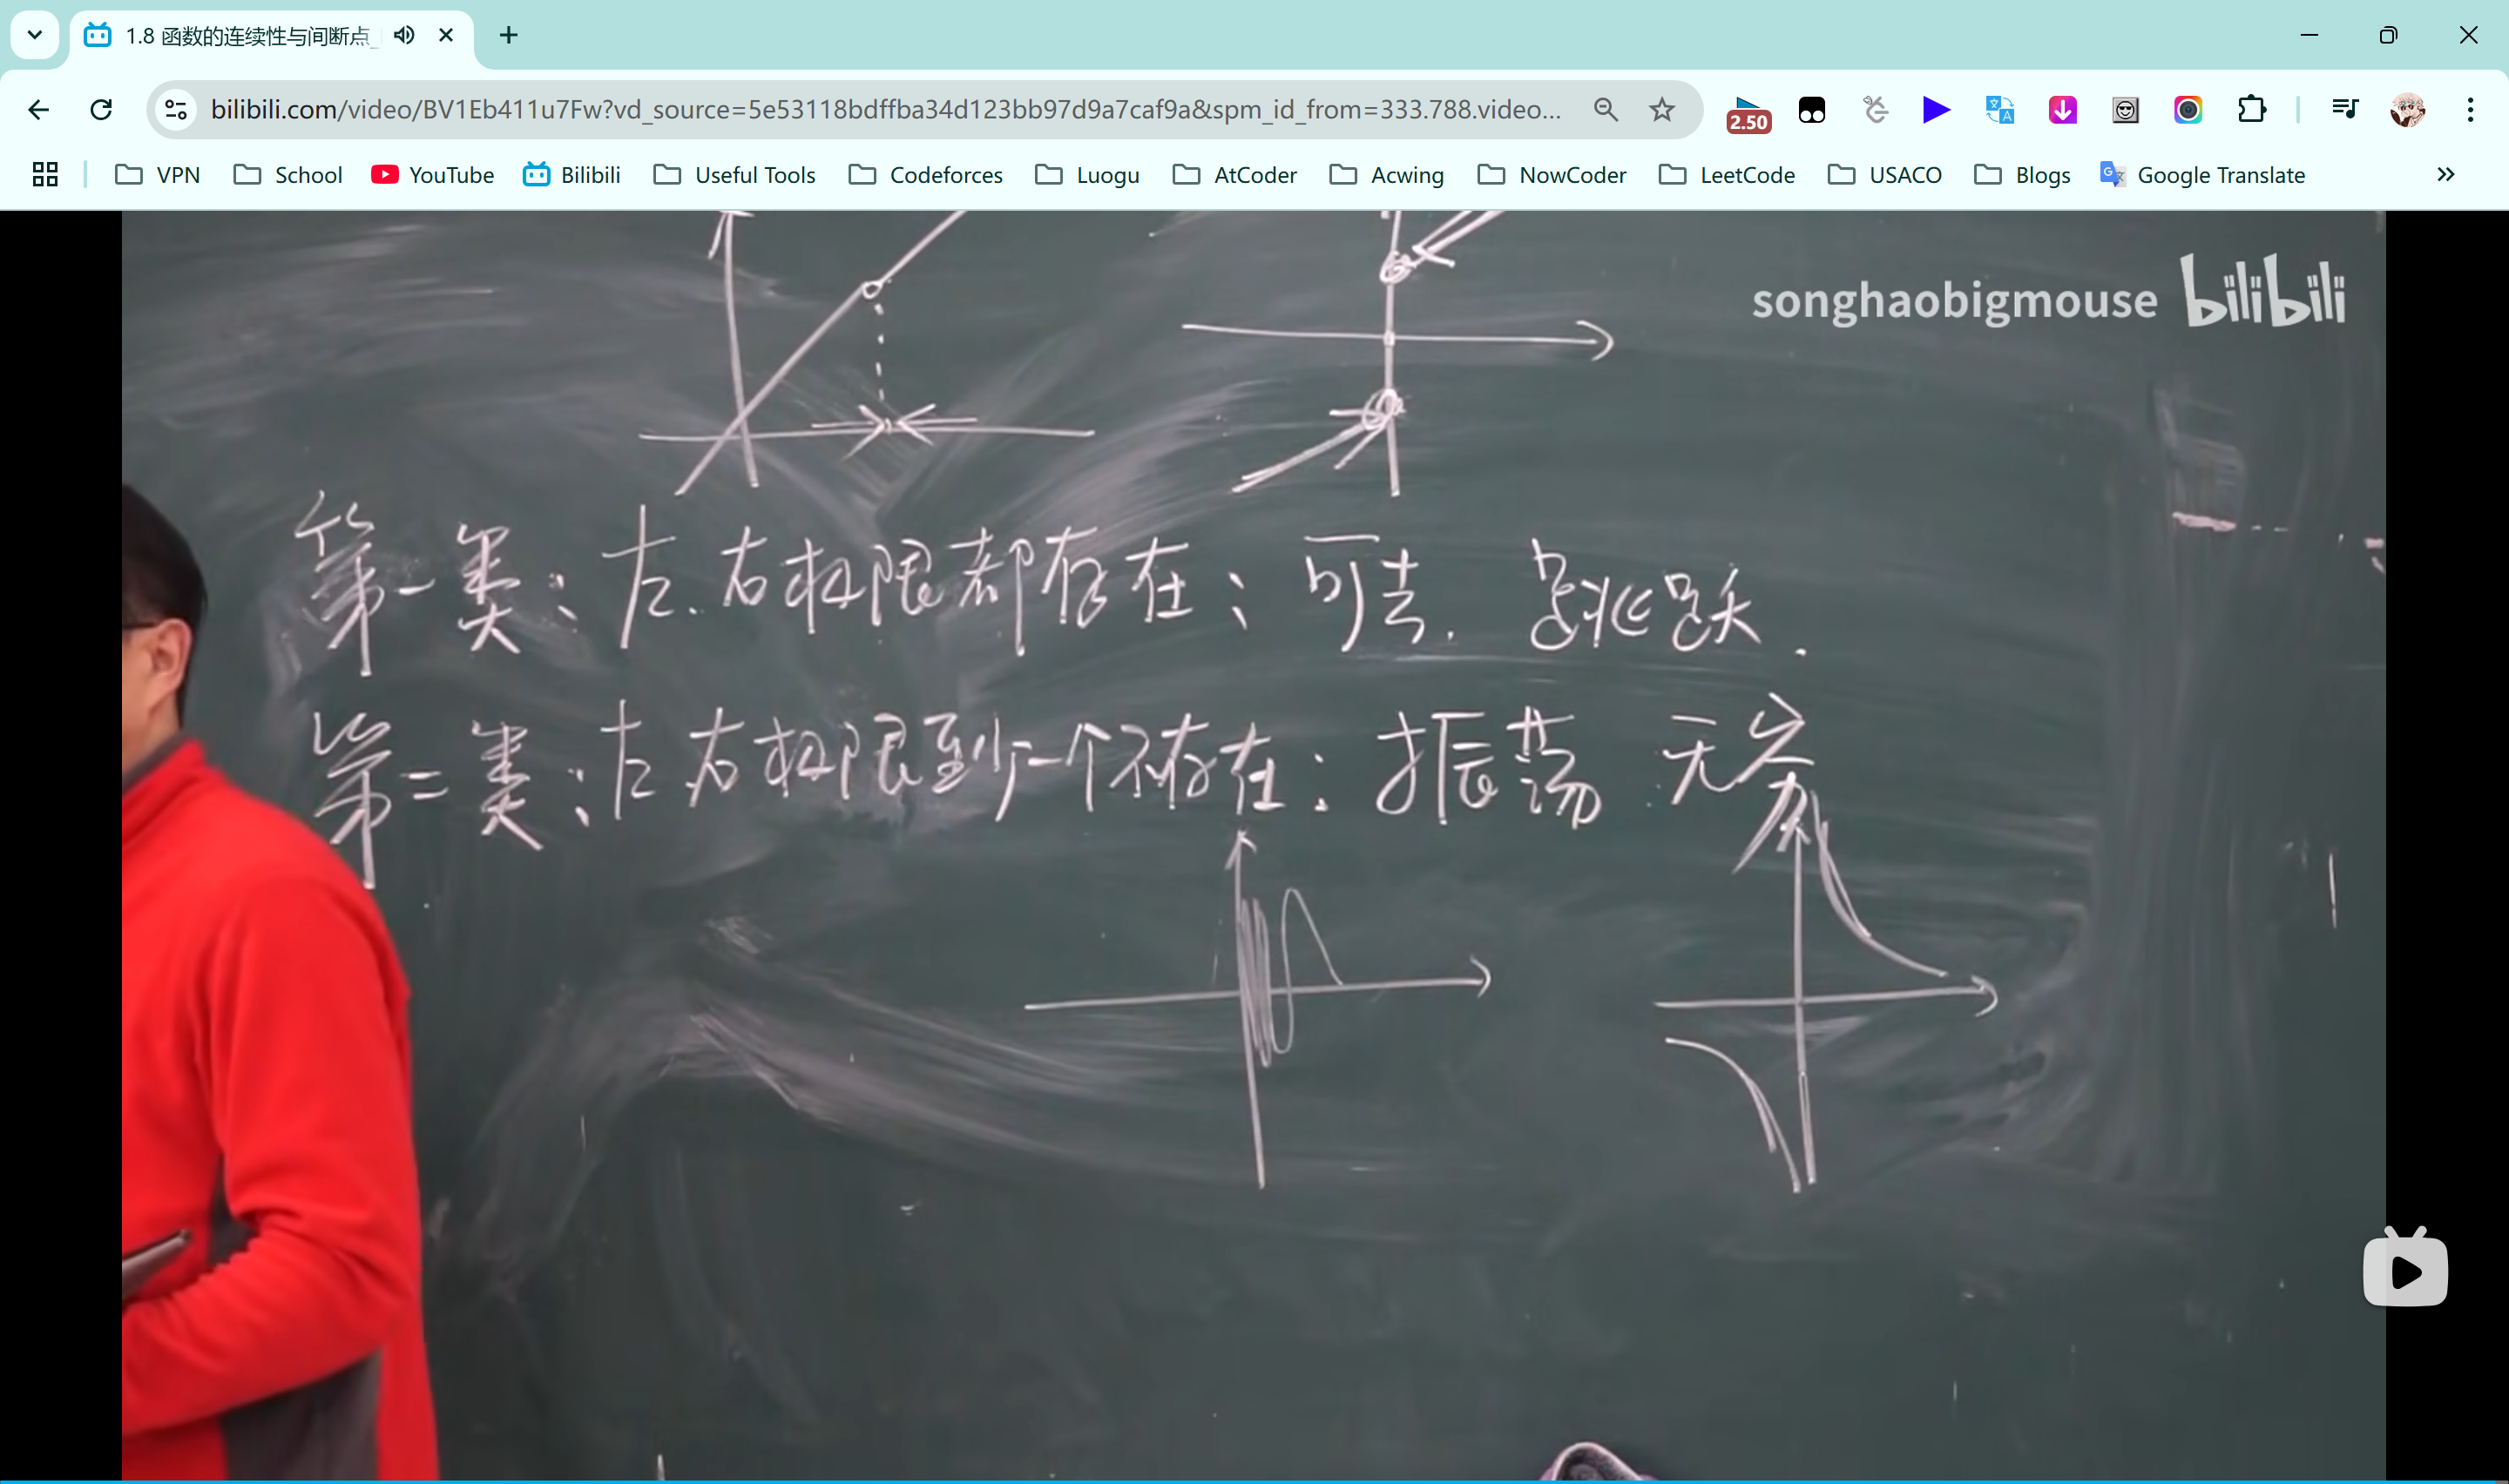 1.8 函数的连续性与间断点_
bilibili.com/video/BV1Eb411u7Fw?vd_source=5e53118bdffba34d123bb97d9a7caf9a&spm_id_from=333.788.video...
2.50
VPN School YouTube Bilibili Useful Tools Codeforces Luogu AtCoder Acwing NowCoder LeetCode USACO Blogs Google Translate
songhaobigmouse bilibili
第一类：左、右极限都存在：可去. 跳跃.
第二类：左右极限至少一个不存在：振荡 无穷